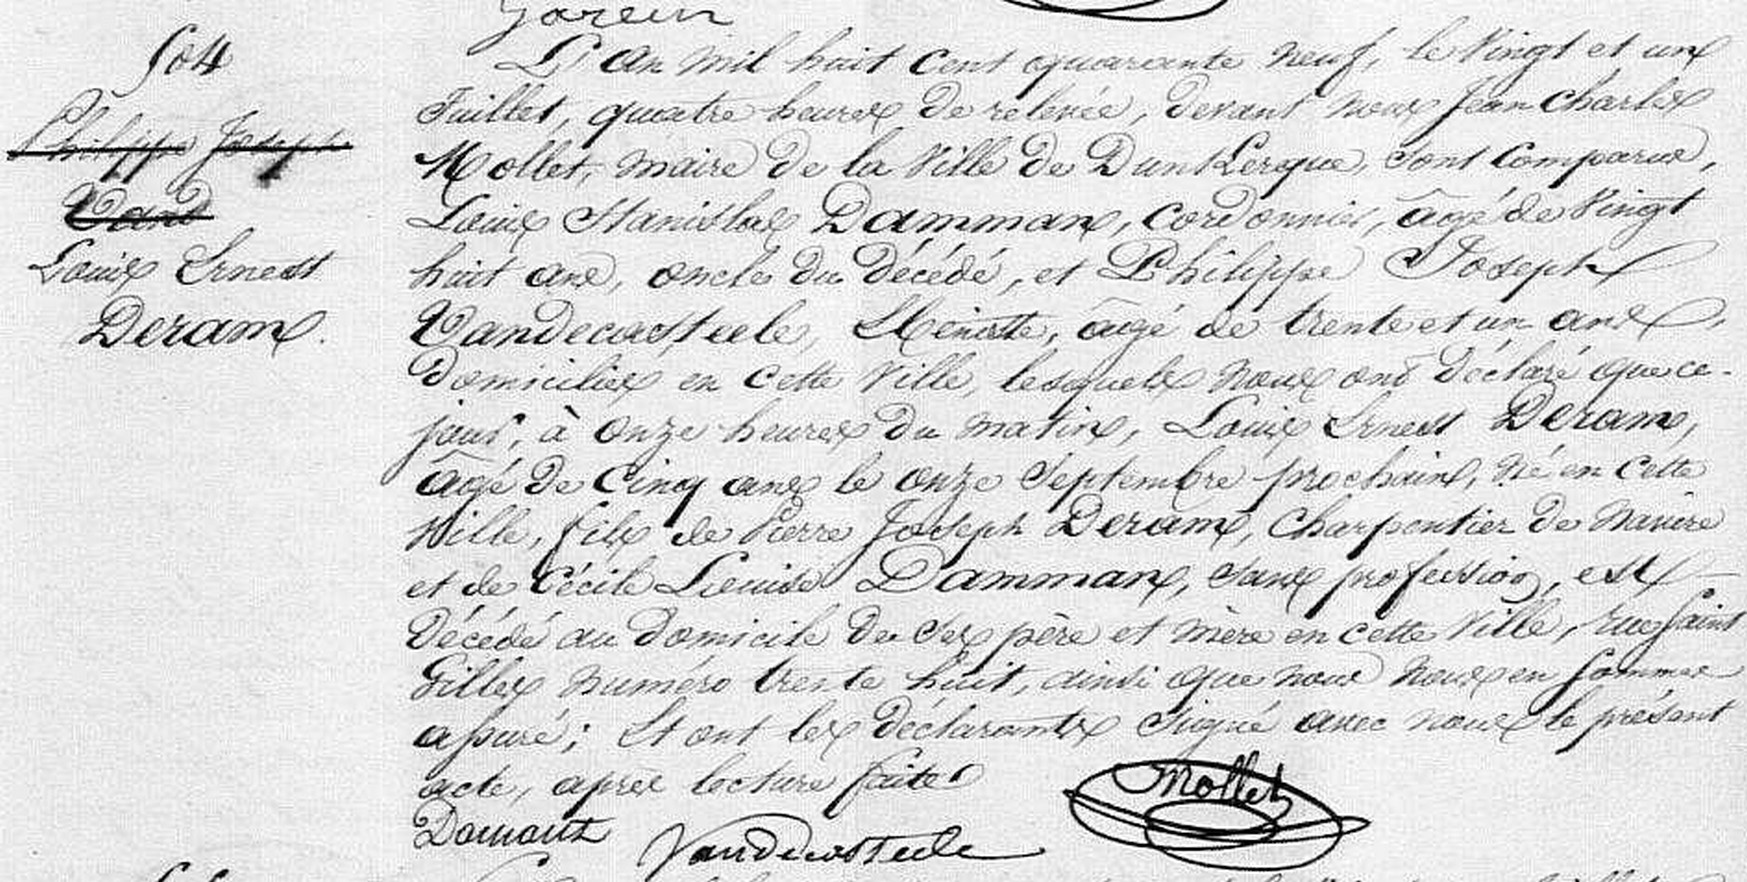 Gorein
504
Philippe Joseph
Vand
Louis Ernest
Deram.
L'an mil huit cent quarante neuf, le vingt et un
Juillet, quatre heures de relevée, devant nous Jean Charles
Mollet, maire de la Ville de Dunkerque, sont comparus,
Louis Stanislas Damman, cordonnier, âgé de vingt
huit ans, oncle du décédé, et Philippe Joseph
Vandecasteele, âgé de trente et un ans,
domiciliés en cette Ville, lesquels nous ont déclaré que ce-
jour, à onze heures du matin, Louis Ernest Deram,
âgé de cinq ans le onze Septembre prochain, né en cette
Ville, fils de Pierre Joseph Deram, charpentier de navire
et de Cécile Louise Damman, sans profession, est
décédé au domicile de ses père et mère en cette Ville, rue Saint
Gilles numéro trente huit, ainsi que nous nous en sommes
assuré; Et ont les déclarants signé avec nous le présent
acte, après lecture faite
Mollet
Vandecasteele